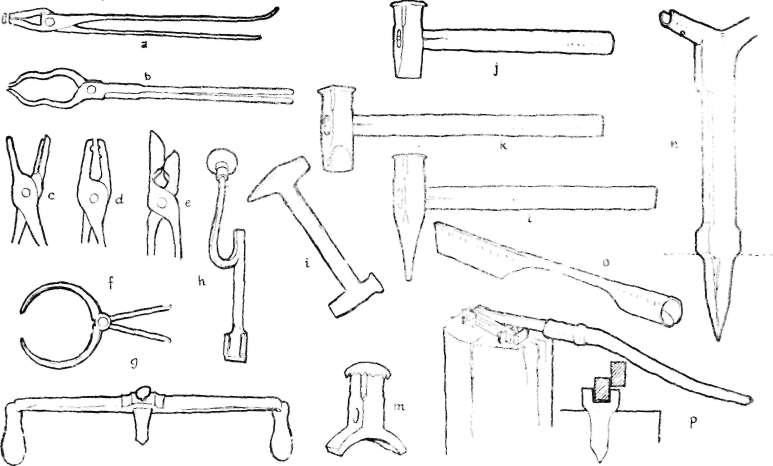 a
b
c
d
e
f
g
h
i
j
k
l
m
n
o
p